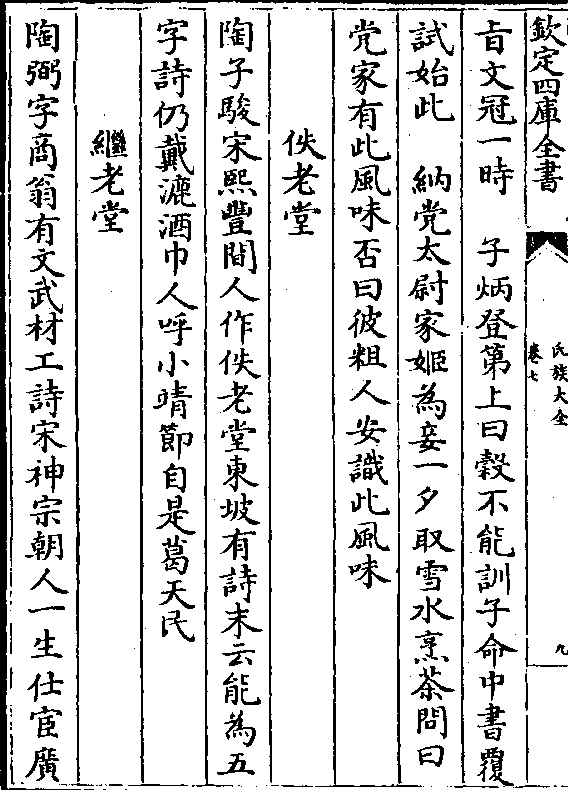 欽定四庫全書
氏族大全
卷七
九
旨文冠一時　子炳登第上曰穀不能訓子命中書覆
試始此　納党太尉家姬為妾一夕取雪水烹茶問曰
党家有此風味否曰彼粗人安識此風味
佚老堂
陶子駿宋熙豐間人作佚老堂東坡有詩末云能為五
字詩仍戴漉酒巾人呼小靖節自是葛天民
繼老堂
陶弼字商翁有文武材工詩宋神宗朝人一生仕宦廣